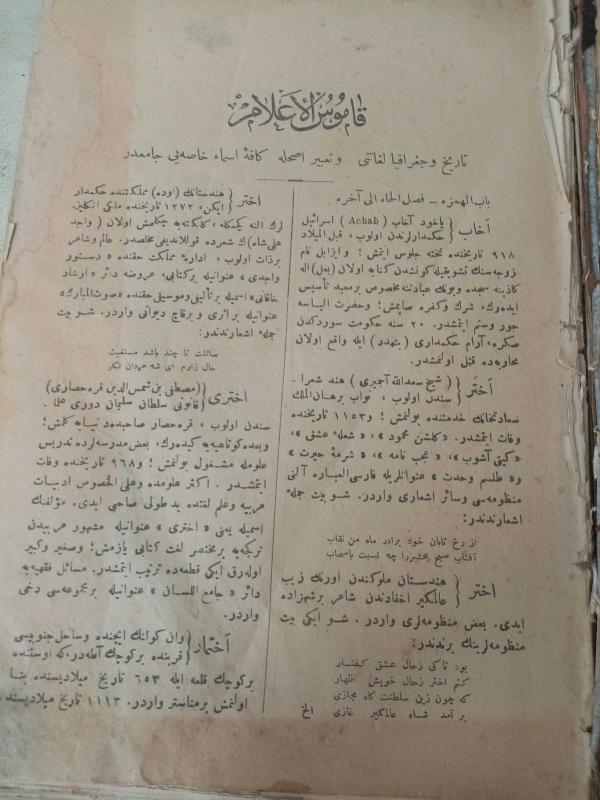 قاموس الأعلام
تاريخ وجغرافيا لغاتنى وتعبير اصحله كافهٔ اسماء خاصه‌يى جامعدر
باب الهمزه – فصل الخاء الى آخره
آخاب { ياخود آخاب (Achab) اسرائيل
حكمدارلرندن اولوب، قبل الميلاد
٩١٨ تاريخنده تخته جلوس ايتمش؛ وايزابل نام
زوجه‌سنك تشويقيله كونشدن كنايه اولان (بعل) اله
كاذبنه سجده وبونك عبادتنه مخصوص برمعبد تأسيس
ايده‌رك، شرك وكفره صاپمش؛ وحضرت الياسه
جور وستم ايتمشدر. ٢٠ سنه حكومت سوردكدن
صكره، آرام حكمدارى (بنهدد) ايله واقع اولان
محاربه‌ده قتل اولنمشدر.
اختر { (شيخ سعدالله آجميرى) هند شعرا -
سندن اولوب، نواب برهان الملك
سعادتخانك خدمتنده بولنمش؛ و١١٥٣ تاريخنده
وفات ايتمشدر. «كلشن محمود»، «شعلهٔ عشق»،
«كيتى آشوب»، «عجب نامه»، «شرمهٔ حيرت»
و« طلسم وحدت » عنوانلريله فارسى العباره آلتى
منظومه‌سى وسائر اشعارى واردر. شو بيت جملهٔ
اشعارندندر:
از رخ تابان خود برادر ماه من نقاب
آفتاب صبح محشررا چه نسبت باسحاب
اختر { هندستان ملوكندن اورنك زيب
عالمكير احفادندن شاعر برشهزاده
ايدى. بعض منظومه‌لرى واردر. شو ايكى بيت
منظومه‌لرينك برندندر:
بود تاكى زحال عشق كفتار
كنم اختر زحال خويش اظهار
كه چون زين سلطنت كاه مجازى
بر آمد شاه عالمكير غازى الخ
اختر { هندستانك (اوده) مملكتنده حكمدار
ايكن، ١٢٧٢ تاريخنده ملكى انكليز
لرك النه كچمكله، كلكته‌يه چكلمش اولان (واجد
على شاه) ك شعرده قوللانديغى مخلصدر. عالم وشاعر
برذات اولوب، ادارهٔ مملكت حقنده « دستور
واجدى » عنوانيله بركتابى، عروضه دائر « ارشاد
خاقانى» اسميله برتأليفى وموسيقى حقنده «صوت المبارك»
عنوانيله براثرى وبرقاچ ديوانى واردر. شو بيت
جملهٔ اشعارندندر:
سائلت تا چند باشد مستغيث
حال زارم اى شه مردان نكر
اخترى { (مصطفى بن شمس الدين قره‌حصارى)
قانونى سلطان سليمان دورى علما -
سندن اولوب، قره‌حصار صاحبده دنيايه كلمش؛
وبعده كوتاهيه‌يه كيده‌رك، بعض مدرسه‌لرده تدريس
علومله مشغول بولنمش؛ و٩٦٨ تاريخنده وفات
ايتمشدر. اكثر علومده وعلى الخصوص ادبيات
عربيه وعلم لغتده يد طولى صاحبى ايدى. مؤلفنك
اسميله يعنى « اخترى » عنوانيله مشهور عربيدن
تركجه‌يه برمختصر لغت كتابى يازمش؛ وصغير وكبير
اوله‌رق ايكى قطعه‌ده ترتيب ايتمشدر. مسائل فقهيه‌يه
دائر « جامع اللسان » عنوانيله برمجموعه‌سى دخى
واردر.
اختمار { وان كولنك ايچنده وساحل جنوبيسى
قربنده بركوچك آطه‌در، كه اوستنده
بركوچك قلعه ايله ٦٥٣ تاريخ ميلاديسنده بنا
اولنمش برمناستر واردر. ١١١٣ تاريخ ميلاديسنده